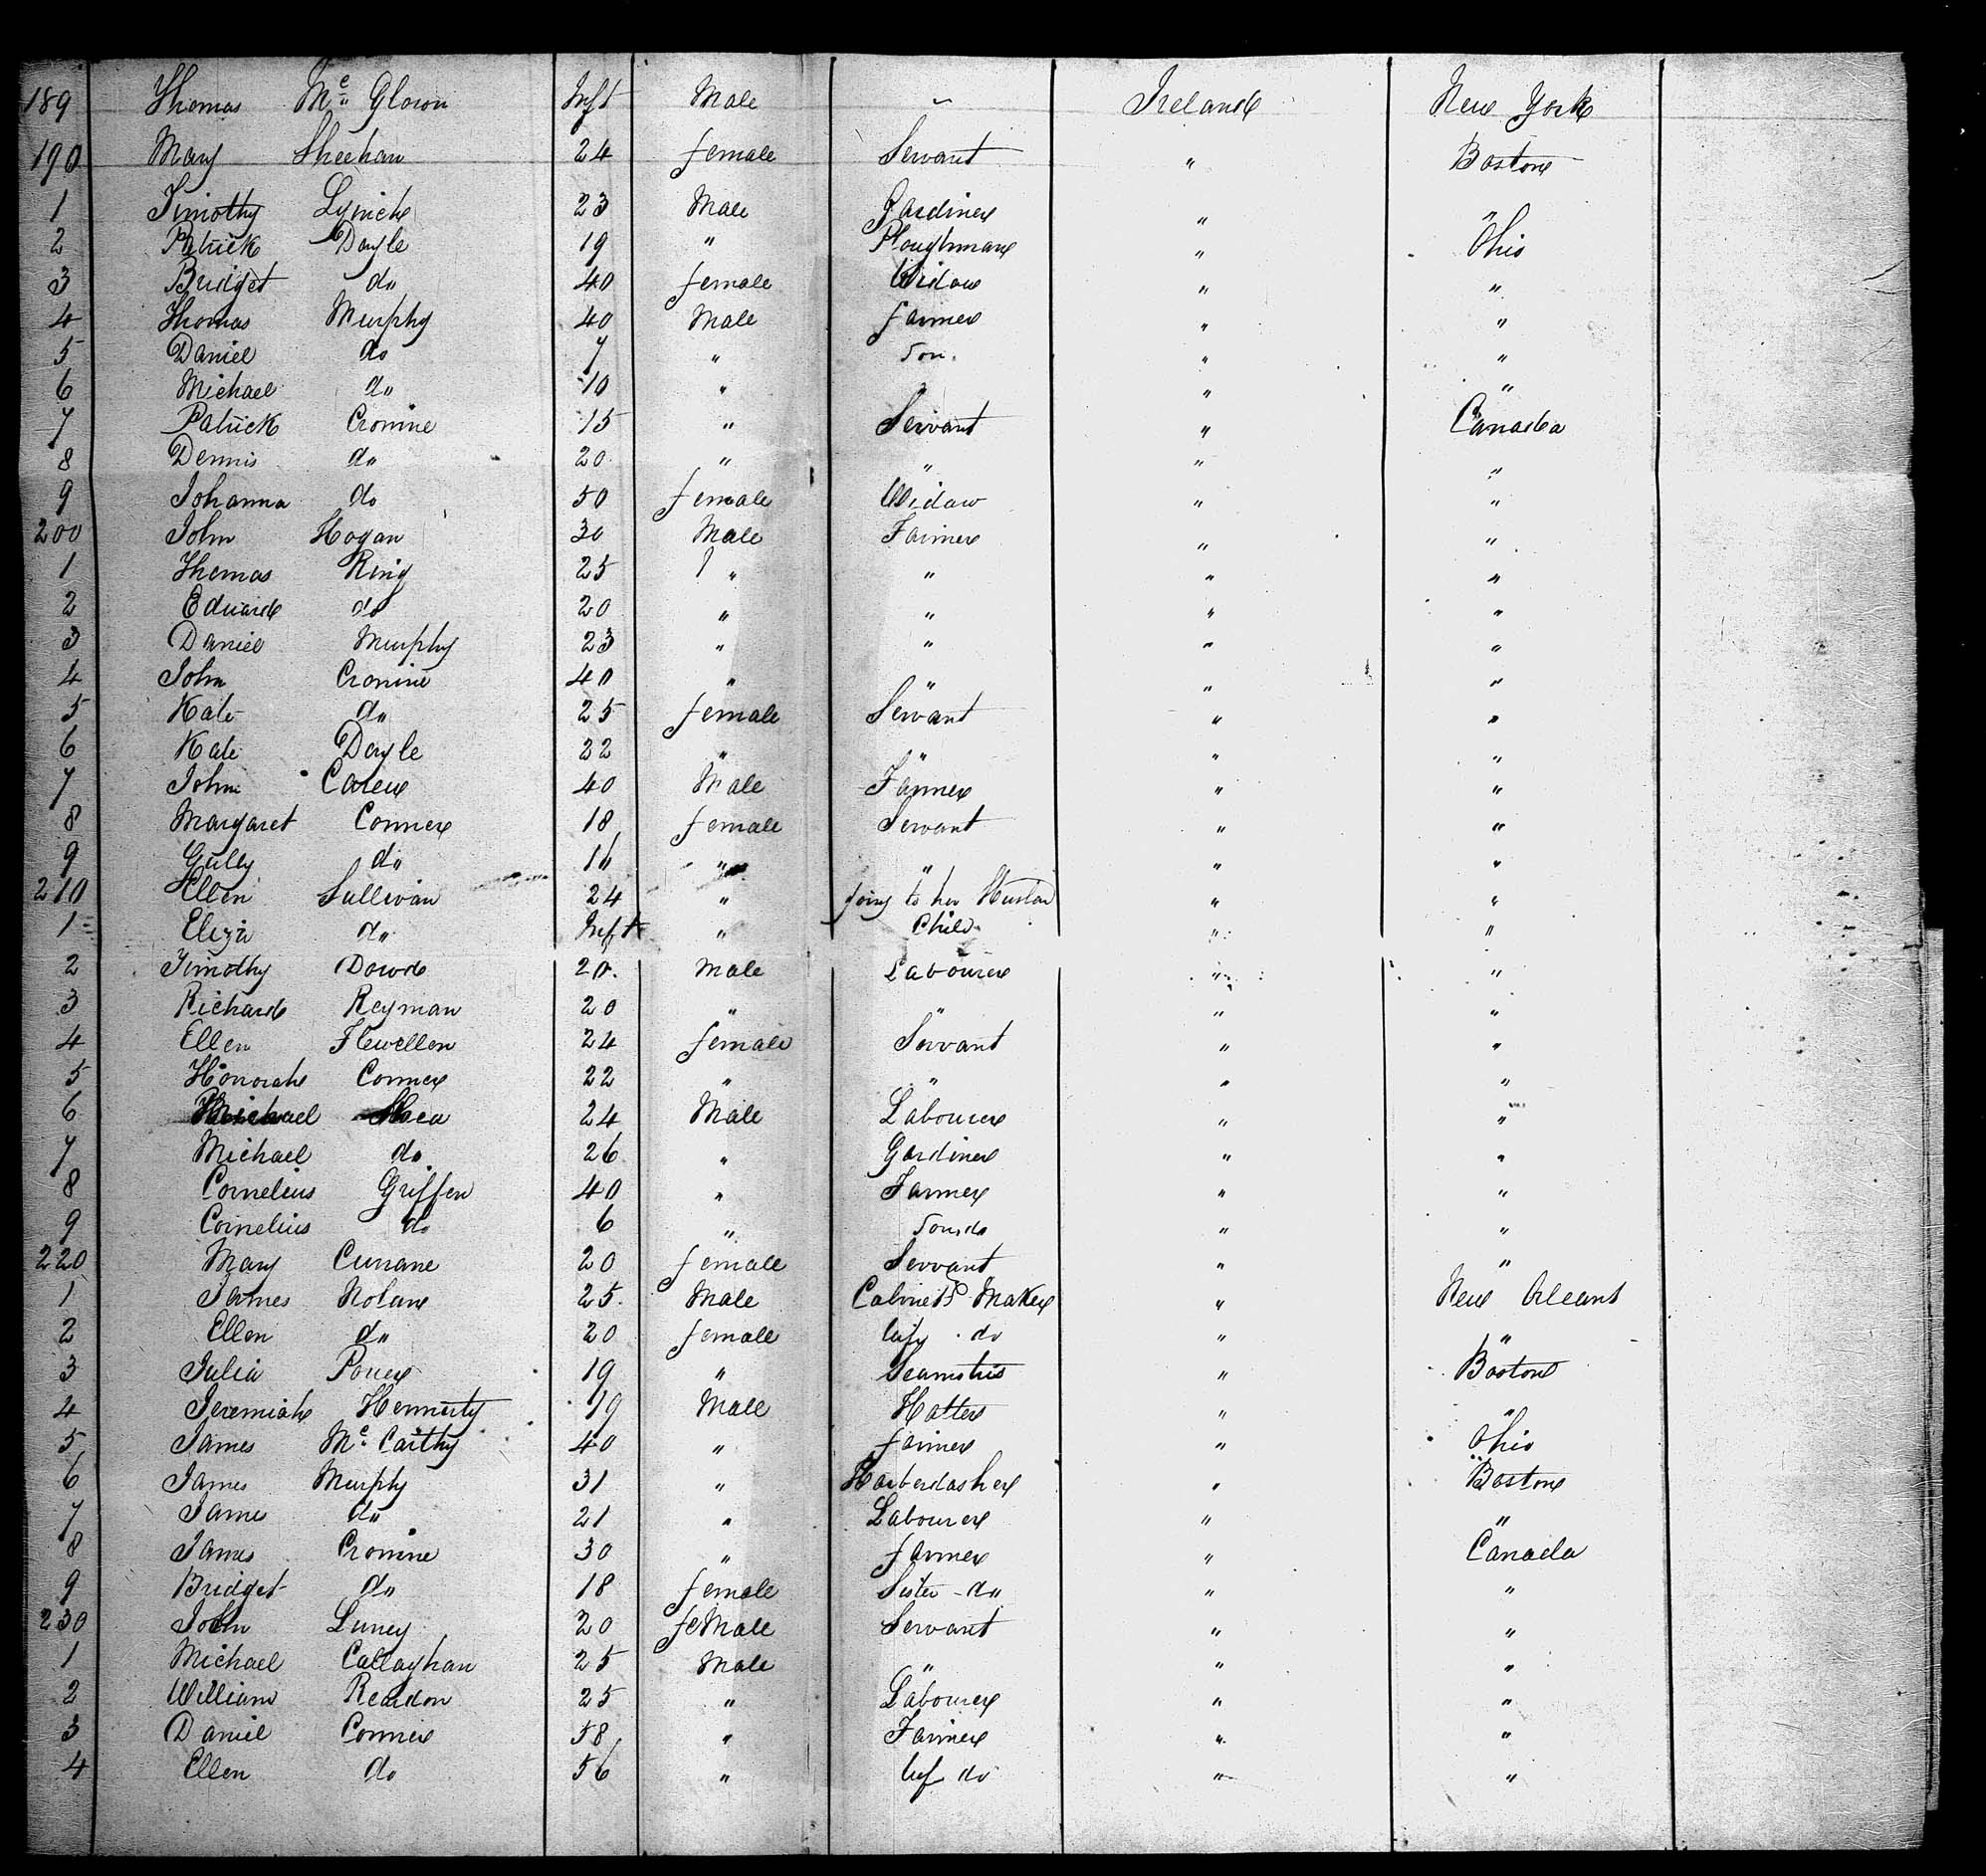 189 Thomas Mc Glown Inft Male ~ Ireland New York
190 Mary Sheehan 24 female Servant " Boston
1 Timothy Lynch 23 Male Gardiner " "
2 Patrick Doyle 19 " Ploughman " Ohio
3 Bridget do 40 female Widow " "
4 Thomas Murphy 40 Male farmer " "
5 Daniel do 7 " Son. " "
6 Michael do 10 " " " "
7 Patrick Cronine 15 " Servant " Canada
8 Dennis do 20 " " " "
9 Johanna do 50 female Widow " "
200 John Hogan 30 Male Farmer " "
1 Thomas King 25 " " " "
2 Edward do 20 " " " "
3 Daniel Murphy 23 " " " "
4 John Cronine 40 " " " "
5 Kate do 25 female Servant " "
6 Kate Doyle 22 " " " "
7 John Carew 40 Male Farmer " "
8 Margaret Conner 18 female Servant " "
9 do 16 " " " "
210 Ellen Sullivan 24 " going to her " "
1 Eliza do Inft " Child " "
2 Timothy Dowd 20. Male Labourer " "
3 Richard Reyman 20 " " " "
4 Ellen Flewellen 24 female Servant " "
5 Honorah Conner 22 " " " "
6 Michael Shea 24 Male Labourer " "
7 Michael do 26 " Gardiner " "
8 Cornelius Griffen 40 " Farmer " "
9 Cornelius do 6 " Son do " "
220 Mary Currane 20 female Servant " "
1 James Nolan 25 Male Cabinett Maker " New Orleans
2 Ellen do 20 female wife do " "
3 Julia Power 19 " Seamstris " Boston
4 Jeremiah Hennerty 19 Male Hatter " "
5 James Mc Carthy 40 " farmer " Ohio
6 James Murphy 31 " Harberdasher " Boston
7 James do 21 " Labourer " "
8 James Cronine 30 " farmer " Canada
9 Bridget do 18 female Sister do " "
230 John Luney 20 feMale Servant " "
1 Michael Callaghan 25 Male " " "
2 William Reardon 25 " Labourer " "
3 Daniel Conner 58 " Farmer " "
4 Ellen do 56 " wif do " "